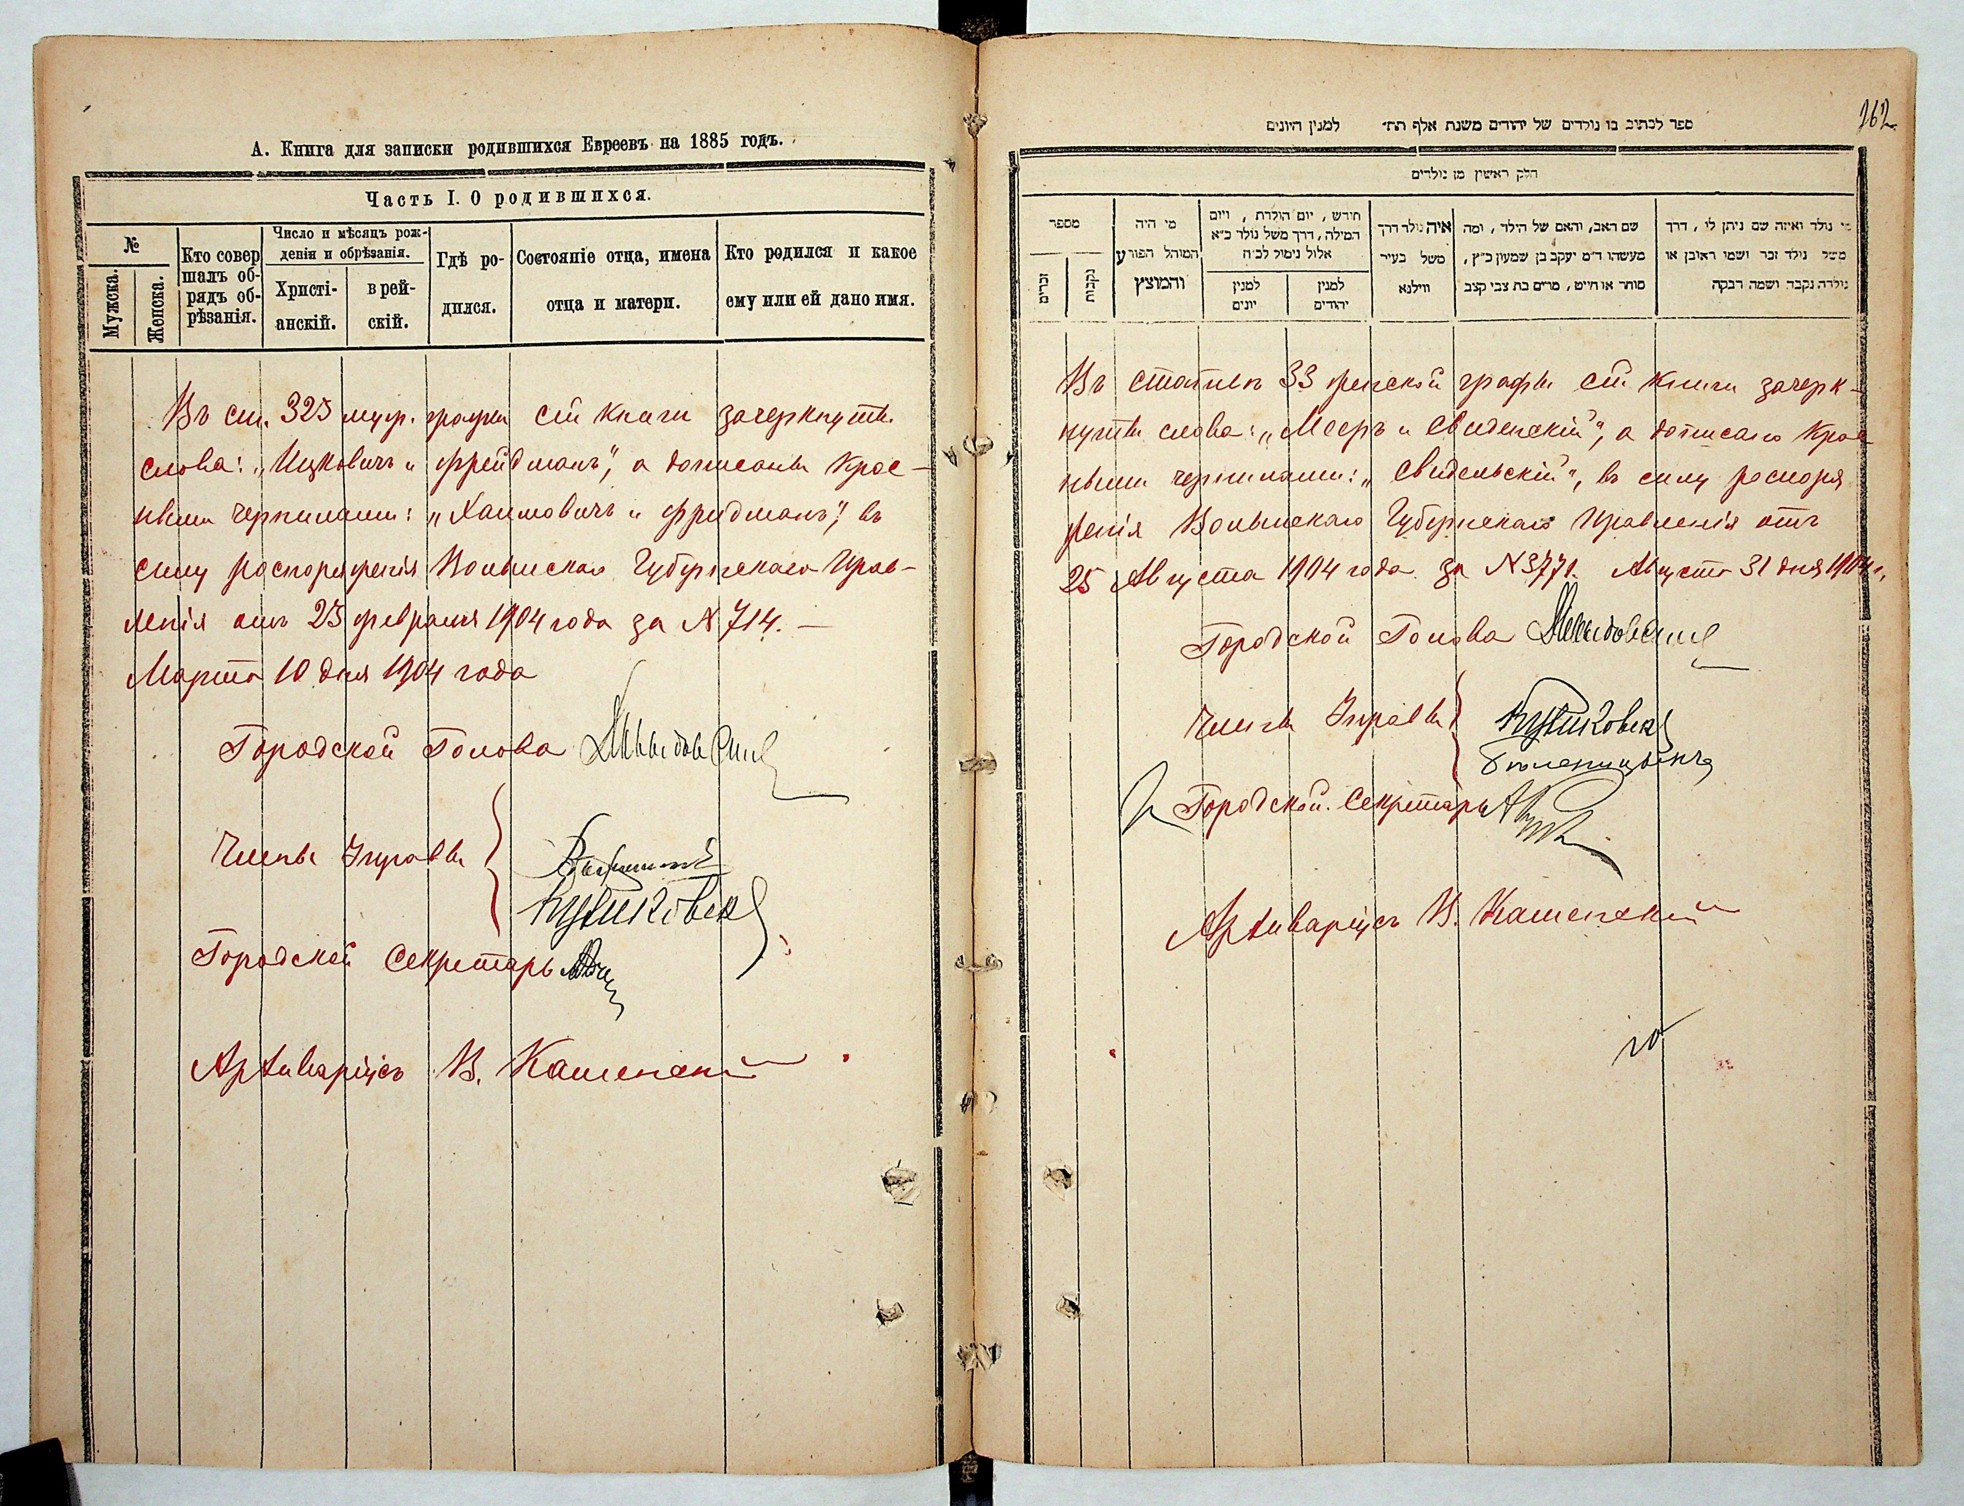 А. Книга для записки родившихся Евреевъ на 1885 годъ.
Часть I. О родившихся.
№
Мужска.
Женска.
Кто совер
шалъ об-
рядъ об-
рѣзанія.
Число и мѣсяцъ рож-
денія и обрѣзанія.
Христі-
анскій.
в рей-
скій.
Гдѣ ро-
дился.
Состояніе отца, имена
отца и матери.
Кто родился и какое
ему или ей дано имя.
Въ ст. 325 муж. графы сей книги зачеркнуты
слова: „Ицковичъ и Фрейдманъ", а дописаны крас-
ными чернилами: „Хаимовичъ и Фридманъ", въ
силу распоряженія Волынскаго Губернскаго Прав-
ленія отъ 23 февраля 1904 года за № 714. —
Марта 10 дня 1904 года
Городской Голова
Члены Управы
Городской Секретарь
Архиваріусъ В. Каменскій
262
ספר לכתוב בו נולדים של יהודים משנת אלף תת״ למנין היונים
חלק ראשון מן נולדים
מספר
זכרים
נקבות
מי היה
המוהל הפורע
והמוצץ
חודש, יום הולדת, ויום
המילה, דרך משל נולד כ״א
אלול נימול לכ״ח
למנין
יונים
למנין
יהודים
איה נולד דרך
משל בעיר
ווילנא
שם האב, והאם של הילד, ומה
מעשהו ד״מ יעקב בן שמעון כ״ץ,
סוחר או חייט, מרים בת צבי קצב
מי נולד ואיזה שם ניתן לו, דרך
משל נולד זכר ושמו ראובן או
נולדה נקבה ושמה רבקה
Въ статьѣ 33 женской графы сей книги зачерк-
нуты слова: „Мееръ и Свиденскій", а дописано крас
ными чернилами: „Свидельскій", въ силу распоря
женія Волынскаго Губернскаго Правленія отъ
25 Августа 1904 года за № 3771. Августа 31 дня 1904 г.
Городской Голова
Члены Управы
Городской Секретарь
Архиваріусъ В. Каменскій